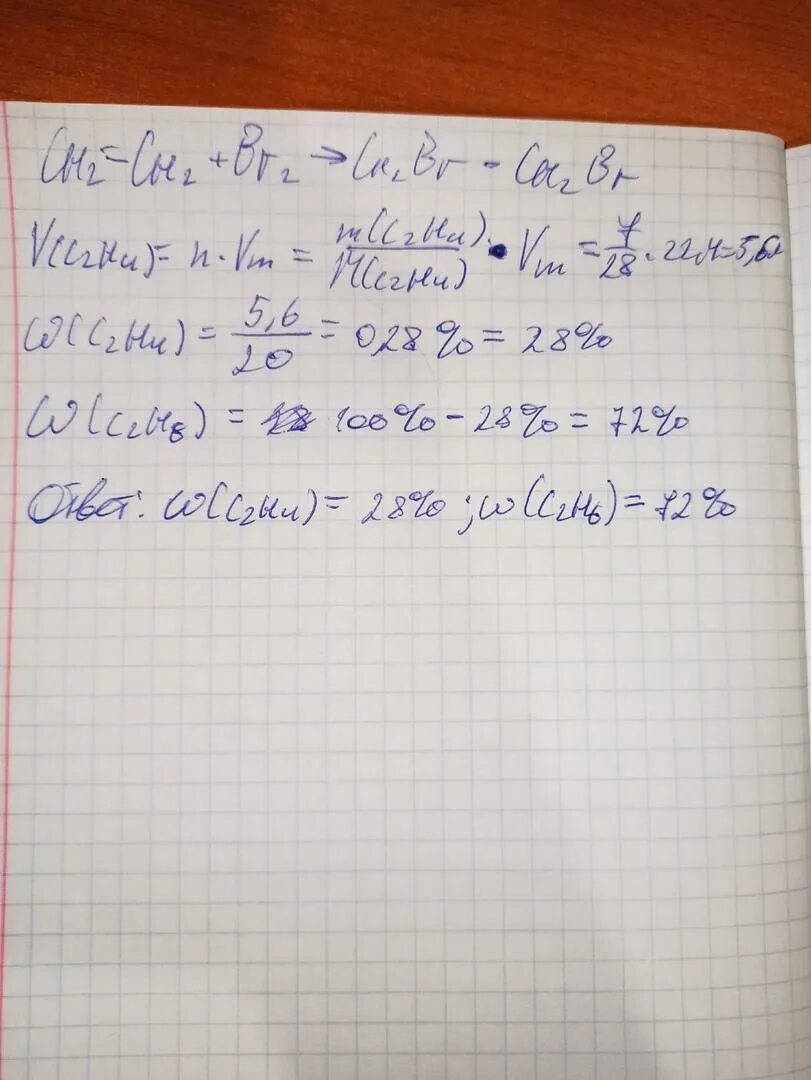 CH₂=CH₂ + Br₂ → CH₂Br - CH₂Br
V(C₂H₄) = n · Vm = m(C₂H₄) / M(C₂H₄) · Vm = 7/28 · 22,4 = 5,6л
ω(C₂H₄) = 5,6/20 = 028% = 28%
ω(C₂H₆) = 100% - 28% = 72%
Ответ: ω(C₂H₄) = 28% ; ω(C₂H₆) = 72%